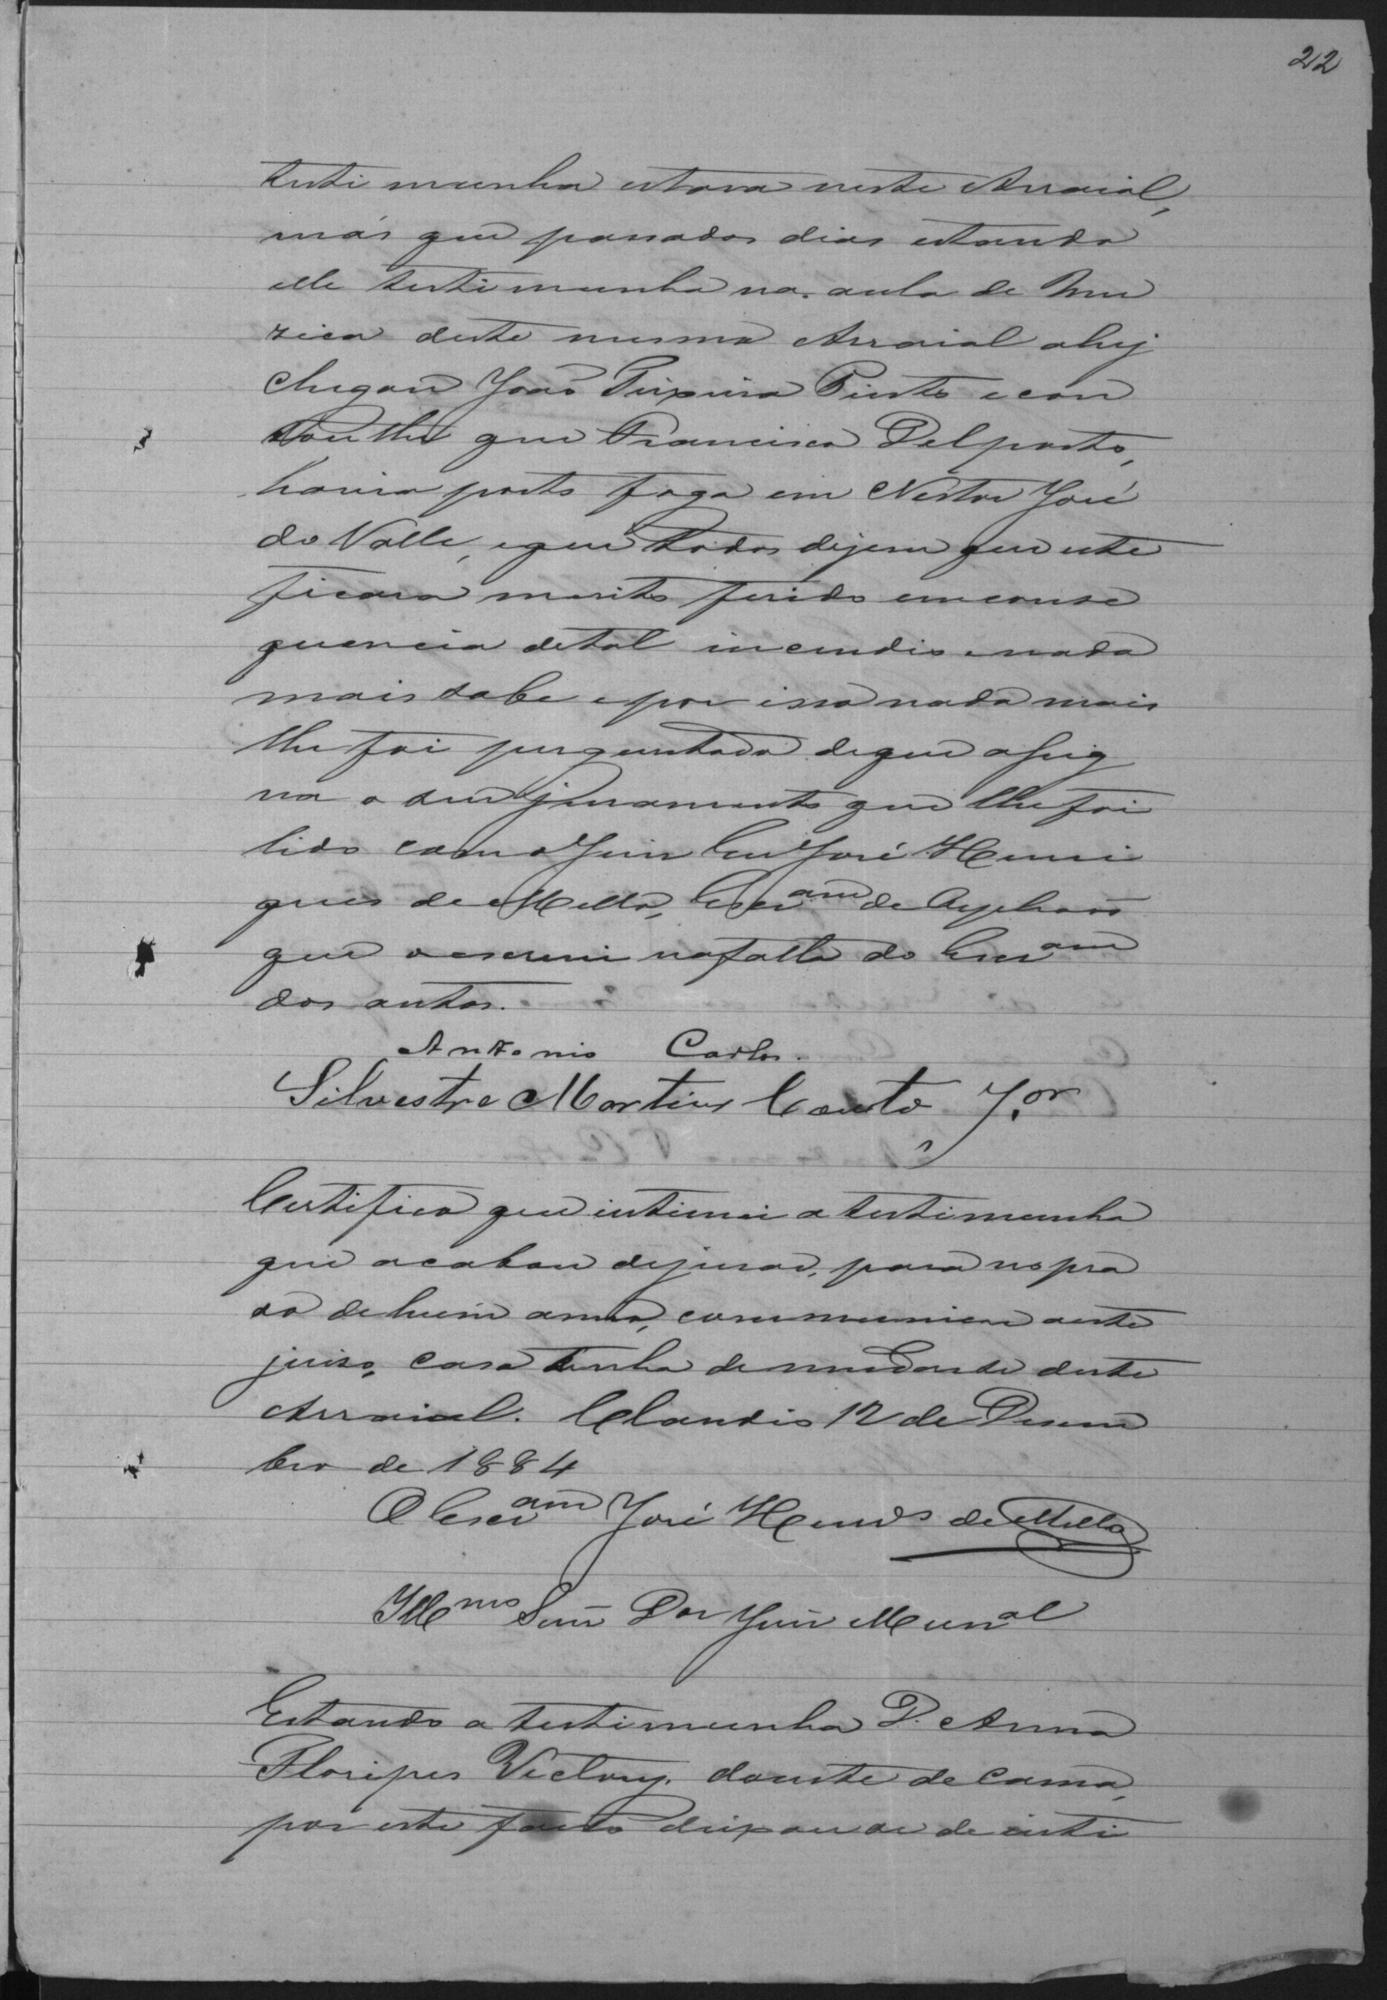 22
testimunha estava neste Arraial,
más que passados dias estando
elle testimunha na aula de Mu
zica deste mesmo Arraial ahy
chegou João Teixeira Pinto e con
tou lhe que Francisco Delporto,
havia posto fogo em Nestor José
do Valle, e que todos dizem que este
ficara muito ferido em conse
quencia de tal incendio e nada
mais sabe e por isso nada mais
lhe foi perguntado de que assig
na o seu juramento que lhe foi
lido com o Juiz Eu José Henri
ques de Mello, Escram de Orphaos
que o escrevi na falta do Escram
dos autos.
Antonio Carlos.
Silvestre Martins Couto Jor
Certifico que intimei a testimunha
que acabou de jurar, para no pra
so de hum anno, communicar a este
juiso, caso tenha de mudar se deste
Arraial. Claudio 12 de Dezem
bro de 1884
O Escram José Henrs de Mello
Illmo Senr Dor Juiz Munal
Estando a testimunha D. Anna
Floripes Victory doente de cama,
por este facto deixou se de inti